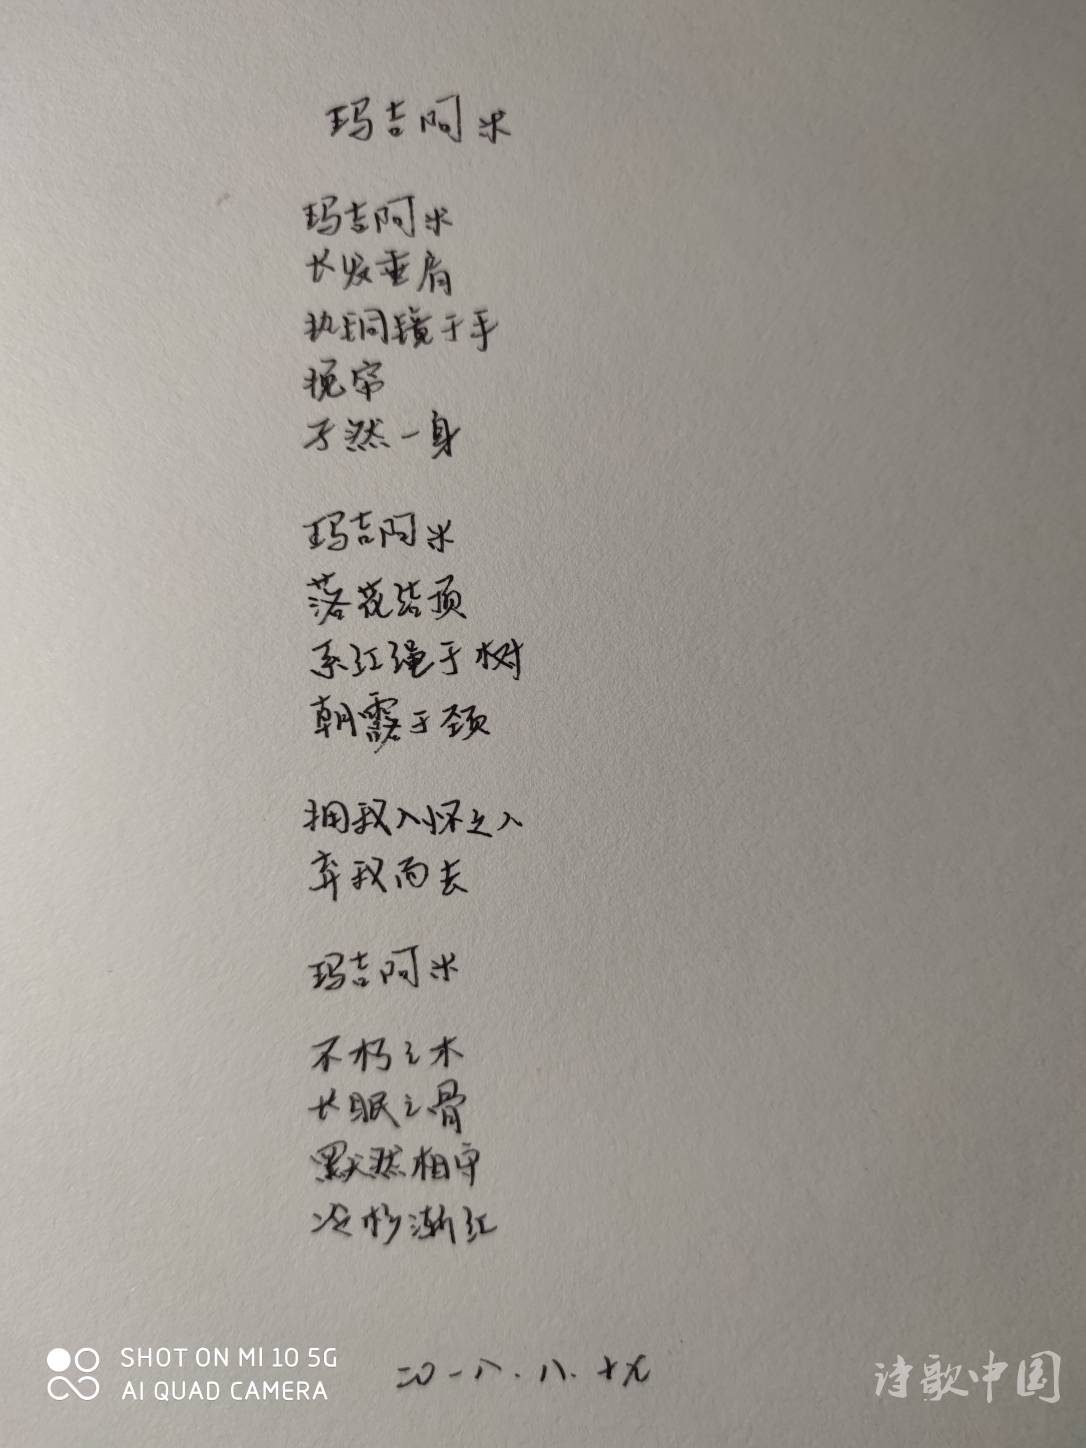 玛吉阿米
玛吉阿米
长发垂肩
执铜镜于手
挽帘
孑然一身
玛吉阿米
落花结顶
系红绳于树
朝露于颈
拥我入怀之人
弃我而去
玛吉阿米
不朽之木
长眠之骨
默然相守
冷杉渐红
二〇一八.八.十九
SHOT ON MI 10 5G
AI QUAD CAMERA
诗歌中国